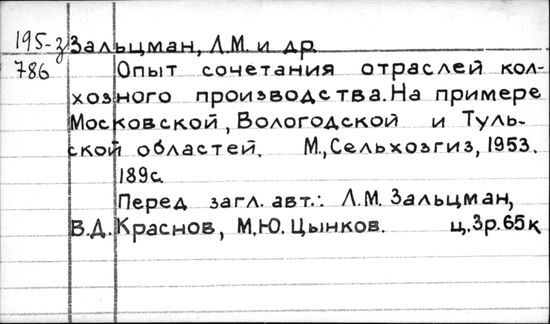 195-3 Зальцман, Л.М. и др.
786 Опыт сочетания отраслей кол-
хозного производства. На примере
Московской, Вологодской и Туль-
ской областей. М., Сельхозгиз, 1953.
189с.
Перед загл. авт.: Л.М. Зальцман,
В.Д. Краснов, М.Ю. Цынков. ц.3р.65к